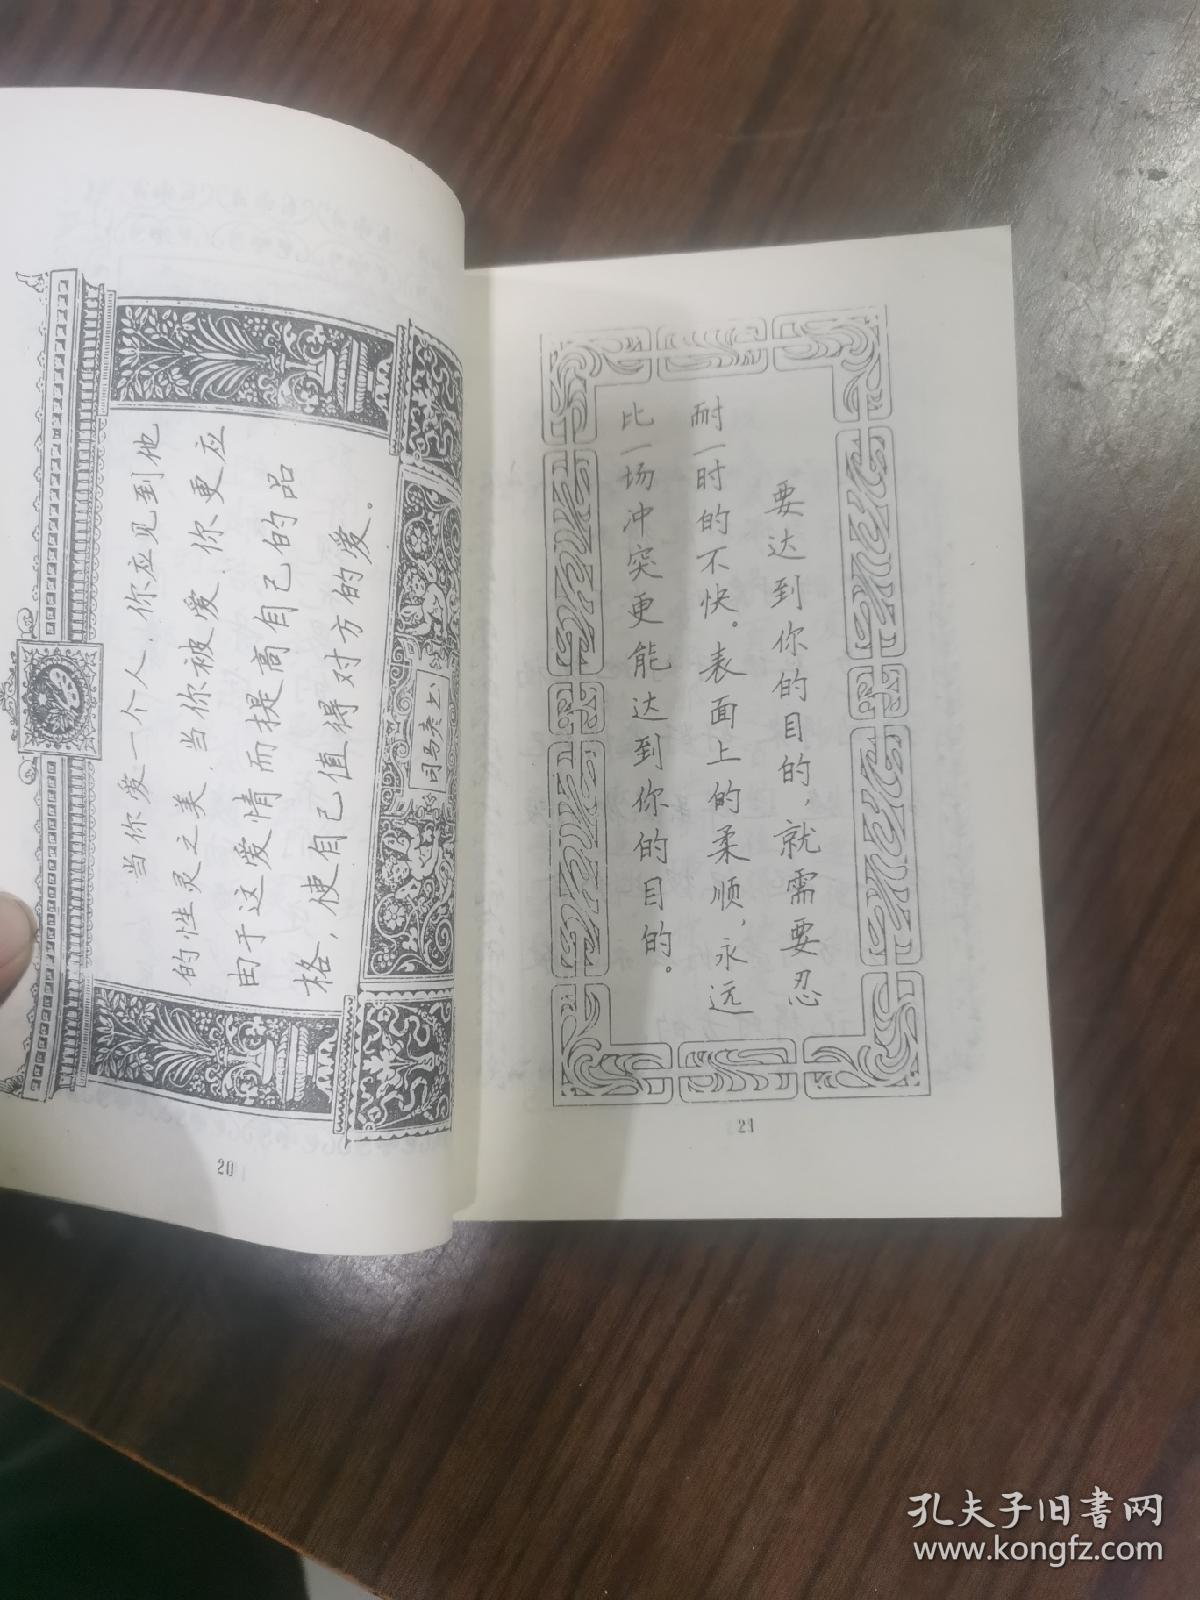 当你爱一个人，你应见到他
的性灵之美，当你被爱，你更应
由于这爱情而提高自己的品
格，使自己值得对方的爱。
司马彦书
20
要达到你的目的，就需要忍
耐一时的不快。表面上的柔顺，永远
比一场冲突更能达到你的目的。
21
孔夫子旧書网
www.kongfz.com